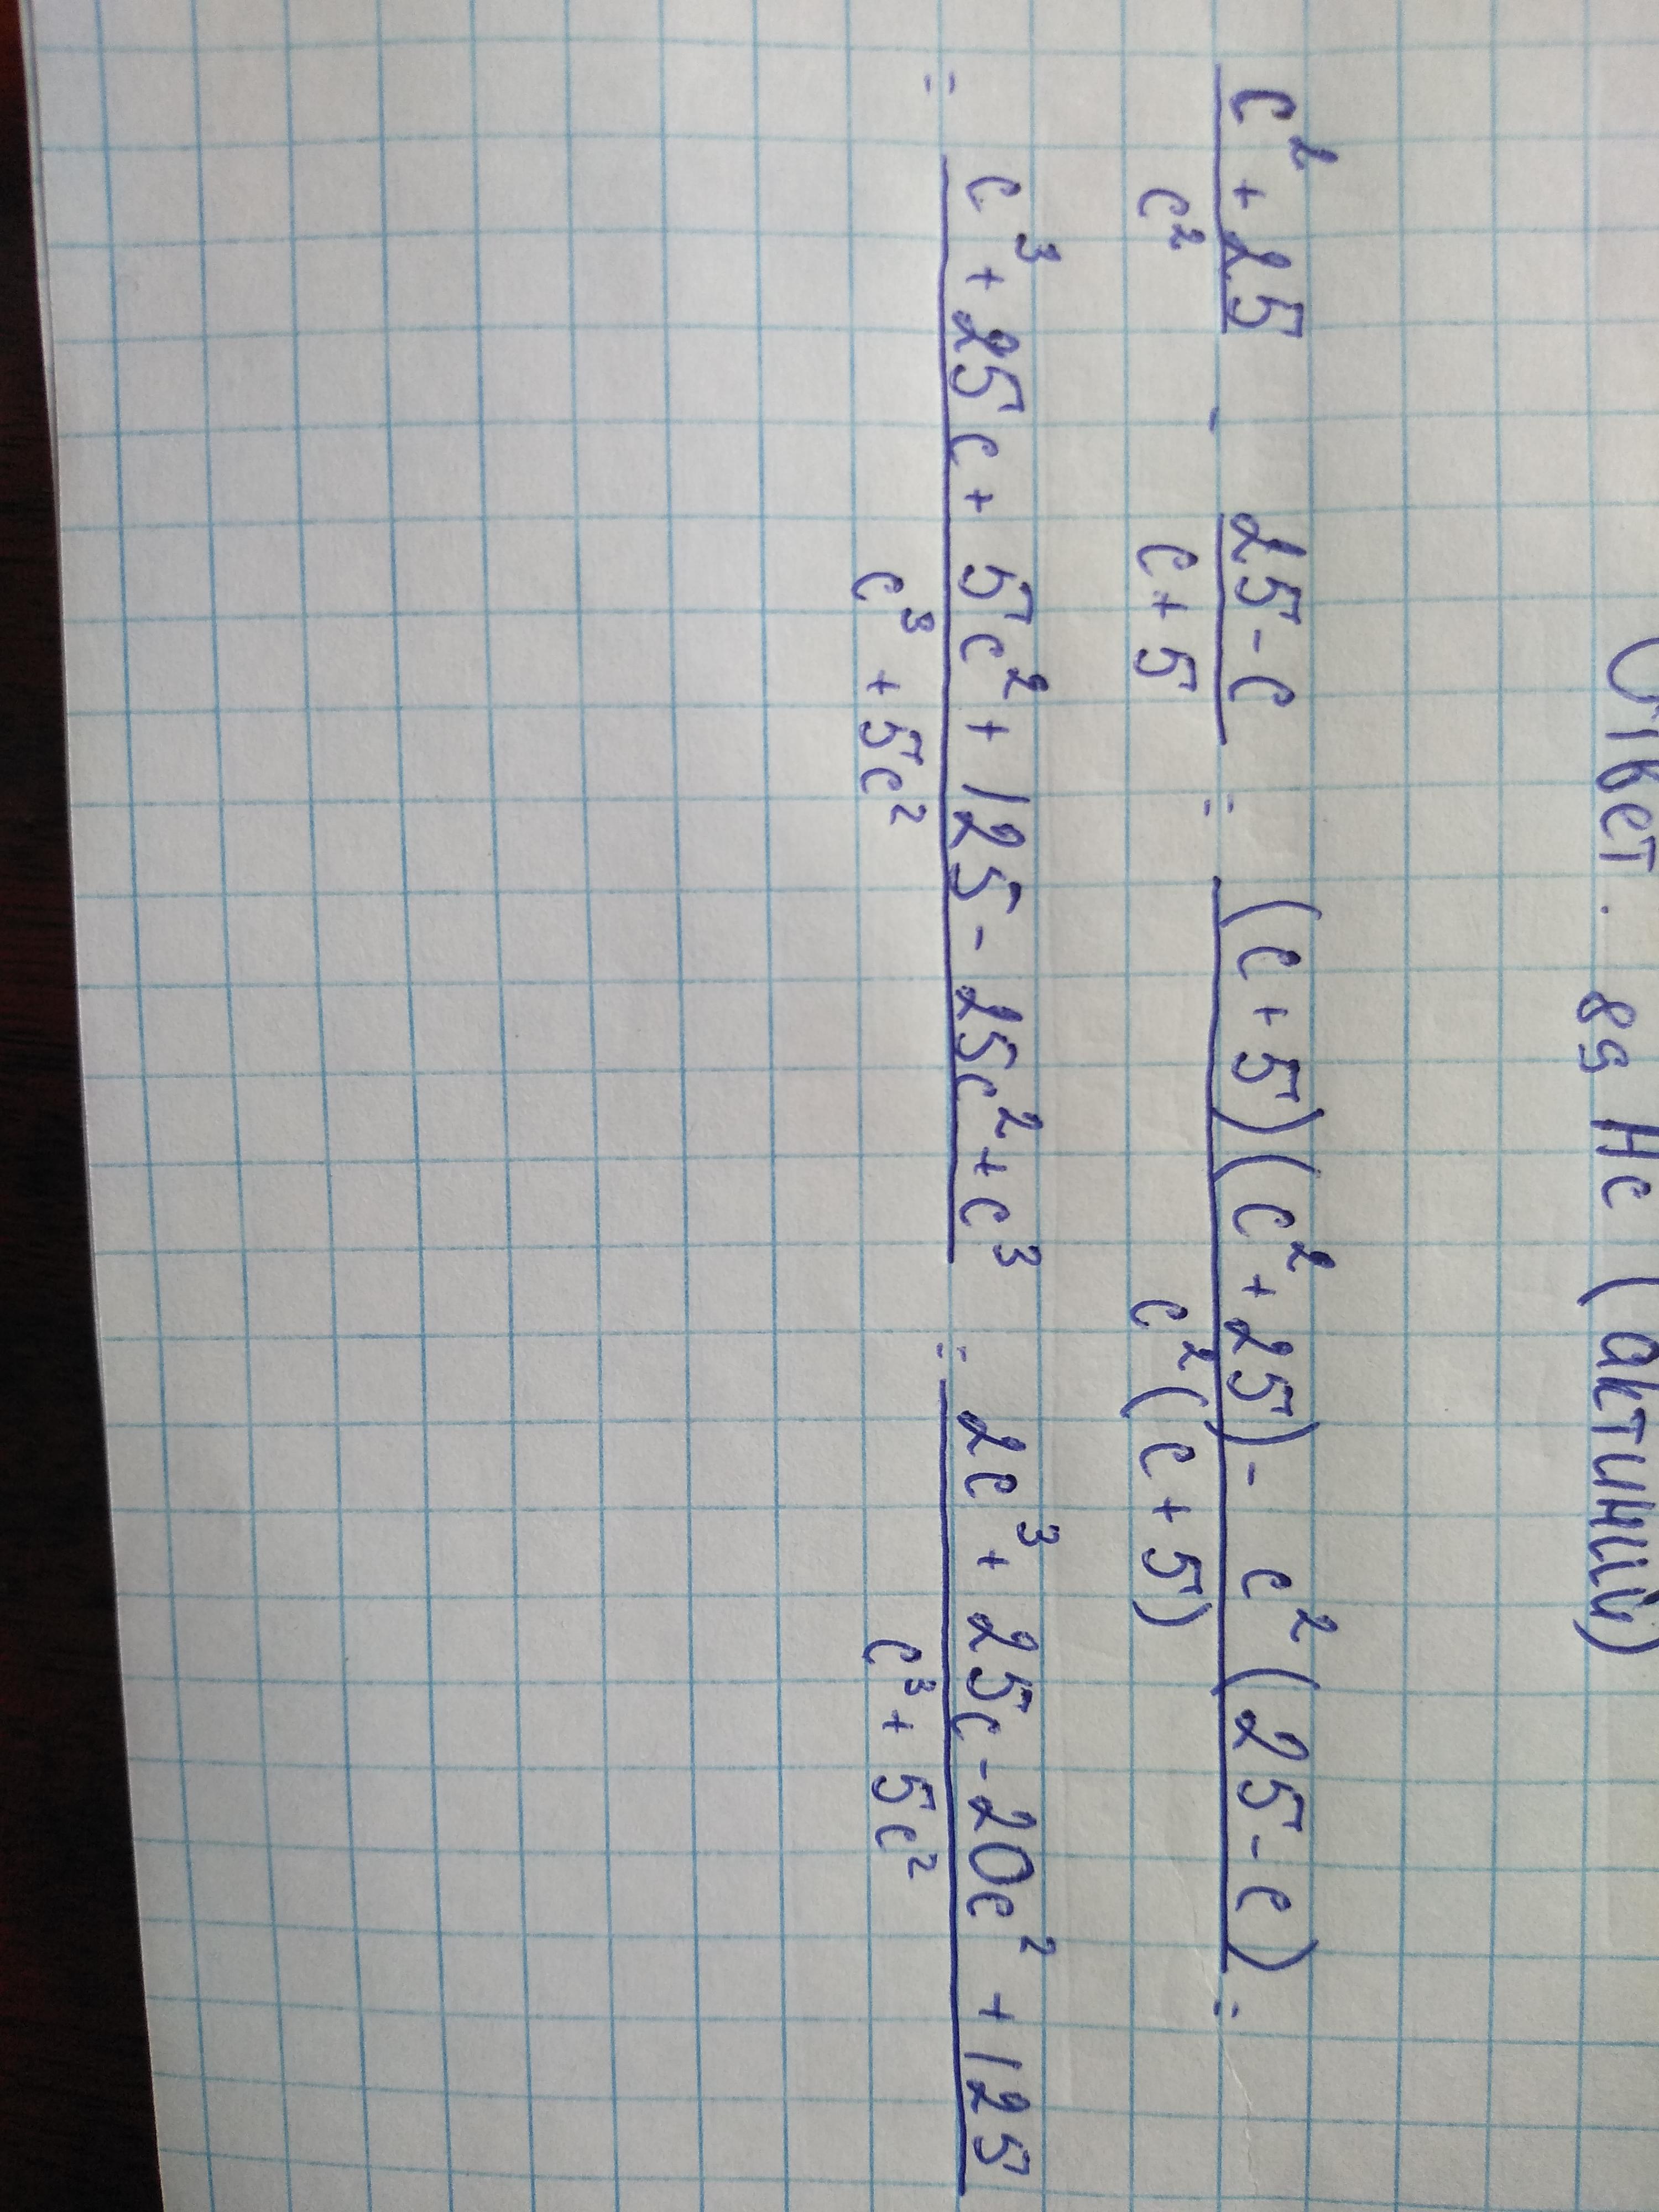 Ответ. 89 Нс (актиний)
(c² + 25)/c² - (25 - c)/(c + 5) = ((c + 5)(c² + 25) - c²(25 - c))/(c²(c + 5)) =
= (c³ + 25c + 5c² + 125 - 25c² + c³)/(c³ + 5c²) = (2c³ + 25c - 20c² + 125)/(c³ + 5c²)